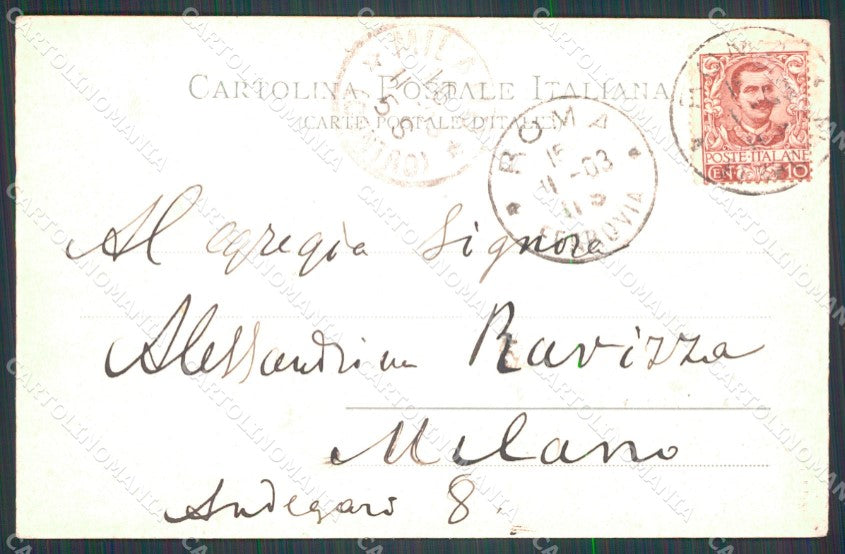 CARTOLINA POSTALE ITALIANA
(CARTE POSTALE D'ITALIE)
MILA
(CENTRO)
ROMA
15
11-03
11 S
FERROVIA
POSTE ITALIANE
CENT 10
Al egregia Signora
Alessandrina Ravizza
Milano
Andegari 8.
CARTOLINOMANIA